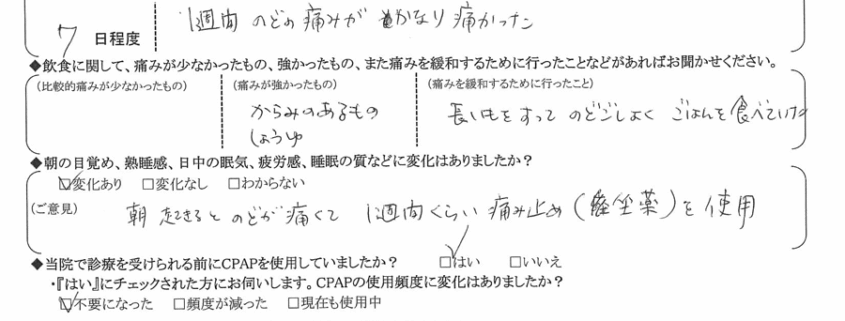 7 日程度
1週間 のどの痛みが かなり痛かった
◆飲食に関して、痛みが少なかったもの、強かったもの、また痛みを緩和するために行ったことなどがあればお聞かせください。
(比較的痛みが少なかったもの) (痛みが強かったもの) (痛みを緩和するために行ったこと)
からみのあるもの
しょうゆ
長いもをすって のどごしよく ごはんを食べていた
◆朝の目覚め、熟睡感、日中の眠気、疲労感、睡眠の質などに変化はありましたか?
☑変化あり □変化なし □わからない
(ご意見) 朝 起きると のどが痛くて 1週間くらい 痛み止め(座薬)を使用
◆当院で診療を受けられる前にCPAPを使用していましたか? ☑はい □いいえ
・『はい』にチェックされた方にお伺いします。CPAPの使用頻度に変化はありましたか?
☑不要になった □頻度が減った □現在も使用中